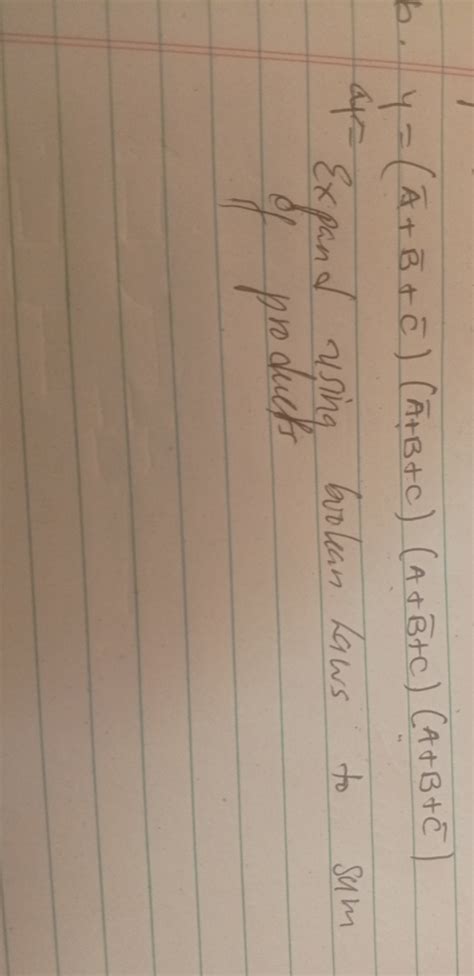 b. y = (Ā + B̄ + C̄) (Ā+B+C) (A+B̄+C) (A+B+C̄)
Expand using boolean laws to sum
of products